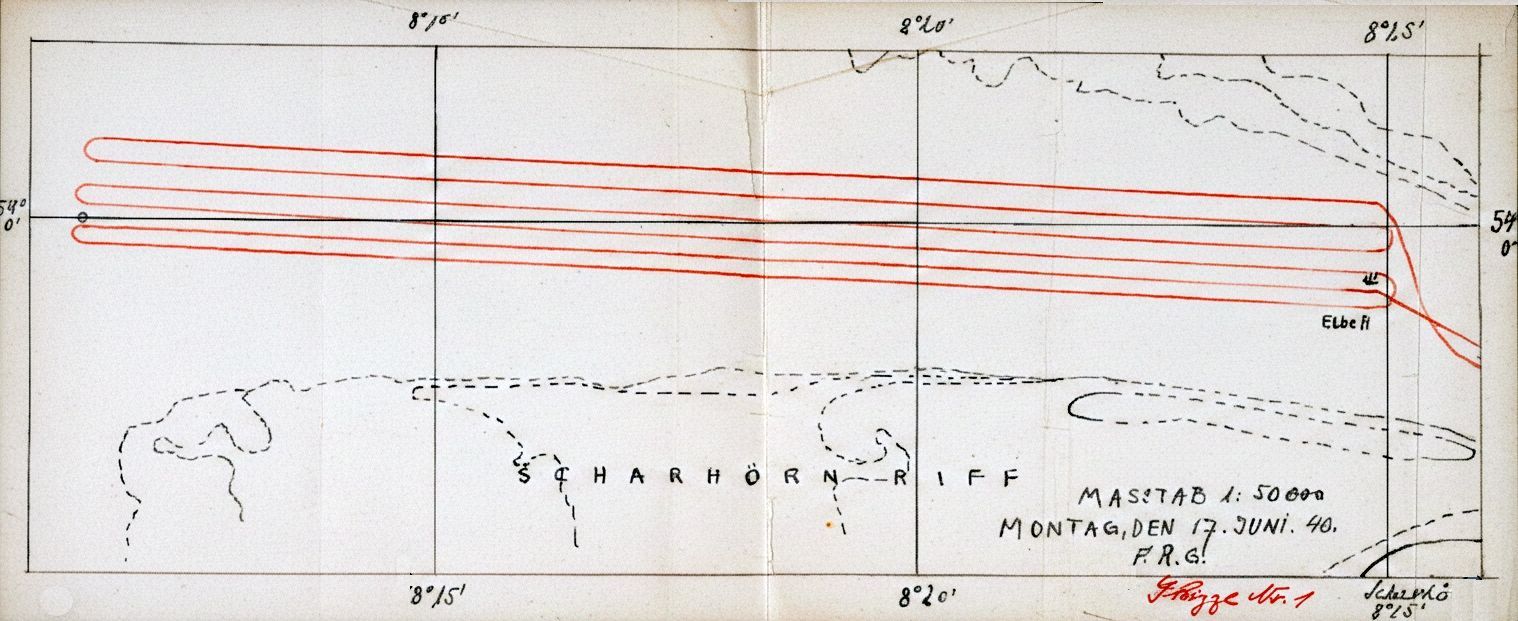 8°15' 8°20' 8°25'
54° 0' 54° 0'
Elbe II
SCHARHÖRN-RIFF
MASSTAB 1:50000
MONTAG, DEN 17. JUNI. 40.
F.R.G.
Skizze Nr. 1
8°15' 8°20' 8°25'